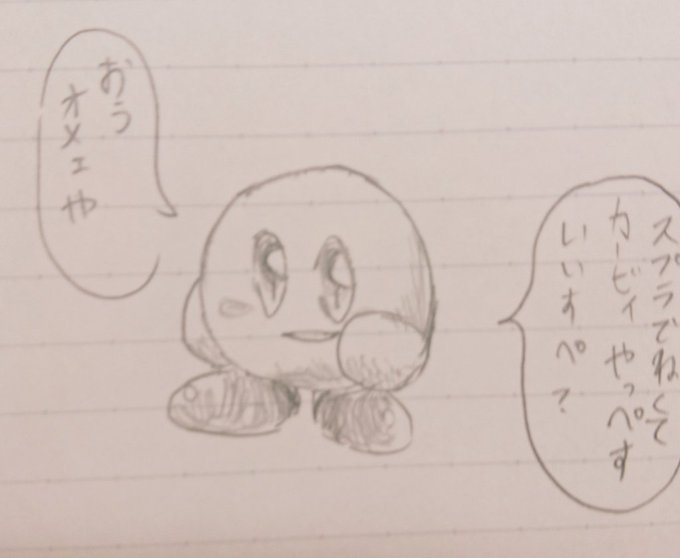 おう
オメェや
スプラでねくて
カービィやっぺす
いいすぺ？